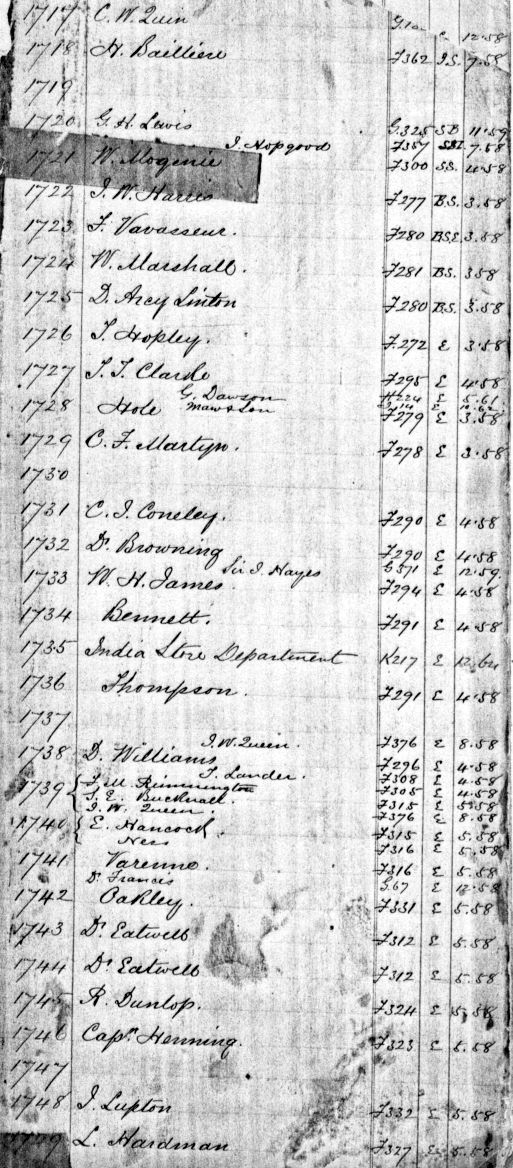 1717 C. W. Quin 12.58
1718 H. Bailliere F362 I.S. 7.58
1719
1720 G. H. Lewis G.325 SB 11.59
I. Hopgood F357 7.58
1721 W. Mogenie F300 SS. 4.58
1722 I. W. Harris F277 B.S. 3.58
1723 F. Vavasseur. F280 BSE 3.58
1724 W. Marshall. F281 BS. 3.58
1725 D. Arcy Linton F280 B.S. 3.58
1726 T. Hopley. F272 E 3.58
1727 T. T. Clarke F295 E 4.58
G. Dawson H224 E 5.61
Mawson E
1728 Hole F279 E 3.58
1729 C. F. Martyn. F278 E 3.58
1730
1731 C. I. Coneley. F290 E 4.58
1732 Dr Browning F290 E 4.58
Sir I. Hayes G371 E 12.59.
1733 W. H. James. F294 E 4.58
1734 Bennett. F291 E 4.58
1735 India Store Department K217 E 12.64
1736 Thompson. F291 E 4.58
1737
I. W. Queen. F376 E 8.58
1738 D. Williams F296 E 4.58
T. Lander. F308 E 4.58
1739 { F. M. Rimmington F305 E 4.58
S. E. Bucknall. F315 E 5.58
I. W. Queen. F376 E 8.58
1740 { E. Hancock F315 E 5.58
Ness F316 E 5.58
1741 Varenne. F316 E 5.58
Dr Francis G67 E 12.58
1742 Oakley. F331 E 5.58
1743 Dr Eatwell F312 E 5.58
1744 Dr Eatwell F312 E 5.58
1745 R. Dunlop. F324 E 5.58
1746 Capn Henning. F323 E 5.58
1747
1748 I. Lupton F332 E 5.58
L. Hardman F327 E 5.58